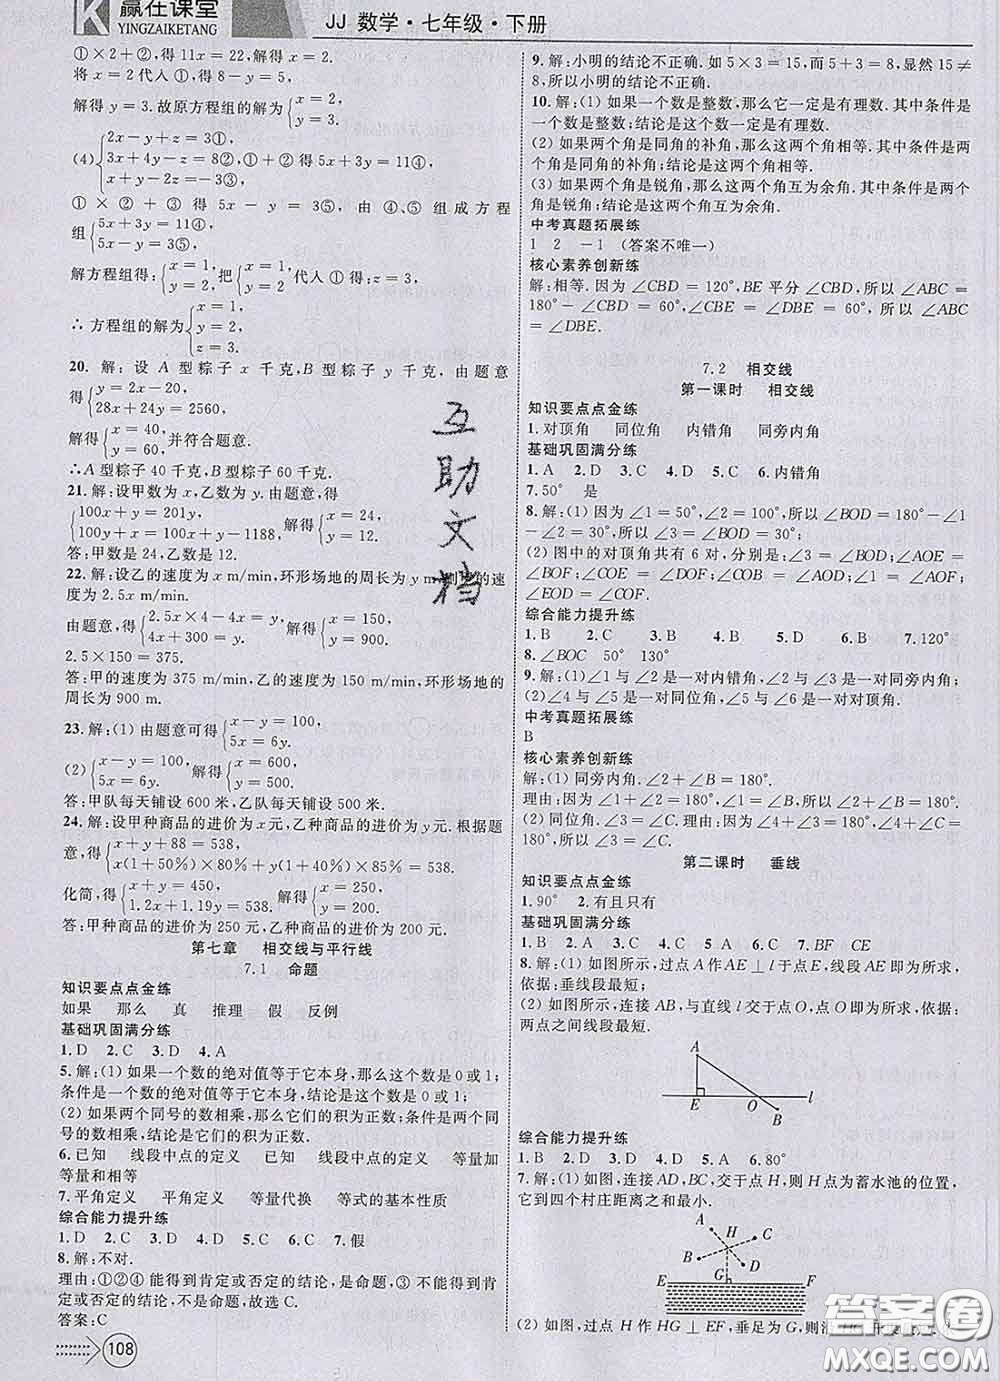 赢在课堂
YINGZAIKETANG
JJ 数学·七年级·下册
①×2+②,得11x=22,解得x=2.
将x=2代入①,得8-y=5,
解得y=3.故原方程组的解为{x=2, y=3.
(4){2x-y+z=3①, 3x+4y-z=8②, ①+②得5x+3y=11④, x+y-2z=-3③,
①×2+③得5x-y=3⑤,由④、⑤组成方程
组{5x+3y=11④, 5x-y=3⑤,
解方程组得:{x=1, y=2, 把{x=1, y=2代入①得:z=3,
∴方程组的解为{x=1, y=2, z=3.
20. 解:设A型粽子x千克,B型粽子y千克,由题意
得{y=2x-20, 28x+24y=2560,
解得{x=40, y=60, 并符合题意.
∴A型粽子40千克,B型粽子60千克.
21.解:设甲数为x,乙数为y.由题意,得
{100x+y=201y, 100y+x=100x+y-1188, 解得{x=24, y=12,
答:甲数是24,乙数是12.
22.解:设乙的速度为x m/min,环形场地的周长为y m,则 的速
度为2.5x m/min.
由题意,得{2.5x×4-4x=y, 4x+300=y, 解得{x=150, y=900.
2.5×150=375.
答:甲的速度为375 m/min,乙的速度为150 m/min,环形场地的
周长为900 m.
23.解:(1)由题意可得{x-y=100, 5x=6y.
(2){x-y=100, 5x=6y. 解得{x=600, y=500.
答:甲队每天铺设600米,乙队每天铺设500米.
24.解:设甲种商品的进价为x元,乙种商品的进价为y元.根据题
意,得{x+y+88=538, x(1+50%)×80%+y(1+40%)×85%=538.
化简,得{x+y=450, 1.2x+1.19y=538. 解得{x=250, y=200.
答:甲种商品的进价为250元,乙种商品的进价为200元.
第七章 相交线与平行线
7.1 命题
知识要点点金练
如果 那么 真 推理 假 反例
基础巩固满分练
1.D 2.C 3.D 4.A
5.解:(1)如果一个数的绝对值等于它本身,那么这个数是0或1;
条件是一个数的绝对值等于它本身,结论是这个数是0或1;
(2)如果两个同号的数相乘,那么它们的积为正数;条件是两个同
号的数相乘,结论是它们的积为正数.
6.已知 线段中点的定义 已知 线段中点的定义 等量加
等量和相等
7.平角定义 平角定义 等量代换 等式的基本性质
综合能力提升练
1.D 2.C 3.D 4.B 5.D 6.D 7.C
8.解:不对.
理由:①②④能得到肯定或否定的结论,是命题,③不能得到肯
定或否定的结论,不是命题,故选C.
答案:C
108
9.解:小明的结论不正确.如5×3=15,而5+3=8,显然15≠
8,所以小明的结论不正确.
10.解:(1)如果一个数是整数,那么它一定是有理数.其中条件是
一个数是整数;结论是这个数一定是有理数.
(2)如果两个角是同角的补角,那么这两个角相等.其中条件是
两个角是同角的补角;结论是这两个角相等.
(3)如果两个角是锐角,那么这两个角互为余角.其中条件是两
个角是锐角;结论是这两个角互为余角.
中考真题拓展练
1 2 -1(答案不唯一)
核心素养创新练
解:相等.因为∠CBD=120°,BE平分∠CBD,所以∠ABC=
180°-∠CBD=60°,∠DBE=60°,所以∠ABC
=∠DBE.
7.2 相交线
第一课时 相交线
知识要点点金练
1.对顶角 同位角 内错角 同旁内角
基础巩固满分练
1.A 2.D 3.C 4.C 5.C 6.内错角
7.50° 是
8.解:(1)因为∠1=50°,∠2=100°,所以∠BOD=180°-∠1
-∠2=30°,所以∠3=∠BOD=30°;
(2)图中的对顶角共有6对,分别是;∠3=∠BOD;∠AOE=
∠BOF;∠COE=∠DOF;∠COB=∠AOD;∠AOF=
∠BOE;∠COF=∠DOE.
综合能力提升练
1.B 2.C 3.C 4.B 5.D 6.B 7.120°
8.∠BOC 50° 130°
9.解:(1)∠1与∠2是一对内错角,∠1与∠3是一对同旁内角.
(2)∠4与∠5是一对同位角,∠4与∠6是一对对顶角.
中考真题拓展练
B
核心素养创新练
解:(1)同旁内角.∠2+∠B=180°.
理由:因为∠1+∠2=180°,∠1=∠B,所以∠2+∠B=180°.
(2)同位角.∠C=∠3.理由:因为∠3+∠4=180°,∠4+∠C=
180°,所以∠3=∠C.
第二课时 垂线
知识要点点金练
1.90° 2.有且只有
基础巩固满分练
1.B 2.A 3.C 4.D 5.A 6.C 7.BF CE
8.解:(1)如图所示,过点A作AE⊥l于点E,线段AE即为所求,
依据:垂线段最短;
(2)如图所示,连接AB,与直线l交于点O,点O即为所求,依据:
两点之间线段最短.
A
E O l
B
综合能力提升练
1.D 2.C 3.A 4.D 5.A 6.80°
7.解:(1)如图,连接AD,BC,交于点H,则H为蓄水池的位置,
它到四个村庄距离之和最小.
A H C
B D
E G F
(2)如图,过点H作HG⊥EF,垂足为G,则沿
互助文档
答案圈
MXQE.COM